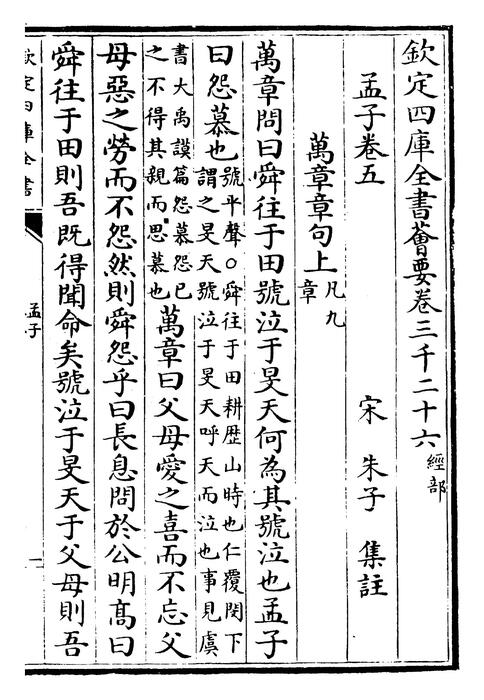 欽定四庫全書薈要卷三千二十六 經部
孟子卷五
宋 朱子 集註
萬章章句上 凡九章
萬章問曰舜往于田號泣于旻天何為其號泣也孟子
曰怨慕也 號平聲○舜往于田耕歴山時也仁覆閔下謂之旻天號泣于旻天呼天而泣也事見虞
書大禹謨篇怨慕怨已之不得其親而思慕也 萬章曰父母愛之喜而不忘父
母惡之勞而不怨然則舜怨乎曰長息問於公明髙曰
舜往于田則吾既得聞命矣號泣于旻天于父母則吾
欽定四庫全書
孟子
一